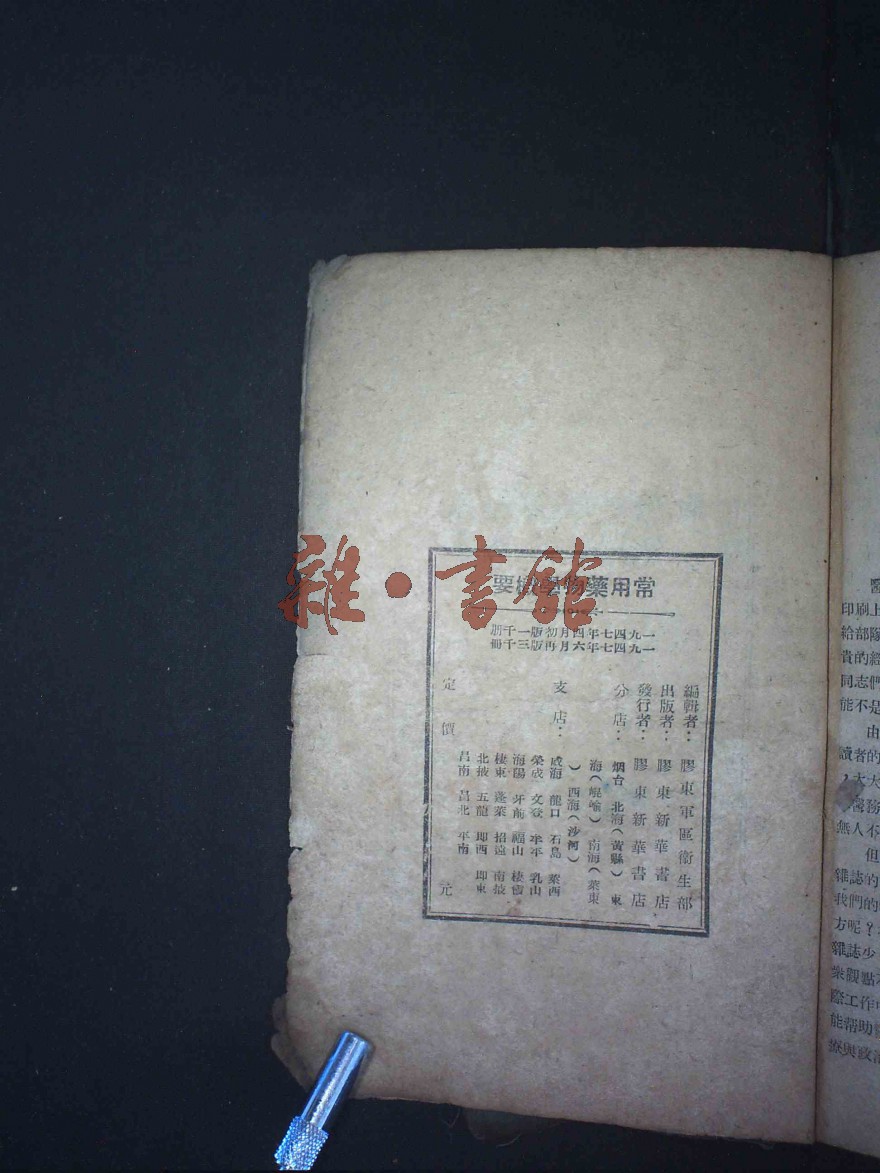 常用藥物學概要
一九四七年四月初版一千册
一九四七年六月再版三千冊
編輯者：膠東軍區衛生部
出版者：膠東新華書店
發行者：膠東新華書店
分店：烟台 北海（黃縣） 東
海（崐嵛） 南海（萊東
） 西海（沙河）
支店：威海 龍口 石島 萊西
榮成 文登 牟平 乳山
海陽 牙前 福山 棲霞
棲東 蓬萊 招遠 南掖
北掖 五龍 即西 即東
昌南 昌北 平南
定價 元
雜·書館
醫
印刷上
給部隊
貴的經
同志們
能不是
由
讀者的
大大
醫務
無人不
但
雜誌的
我們的
方呢？
雜誌少
衆觀點
際工作中
能帮助
療與政治